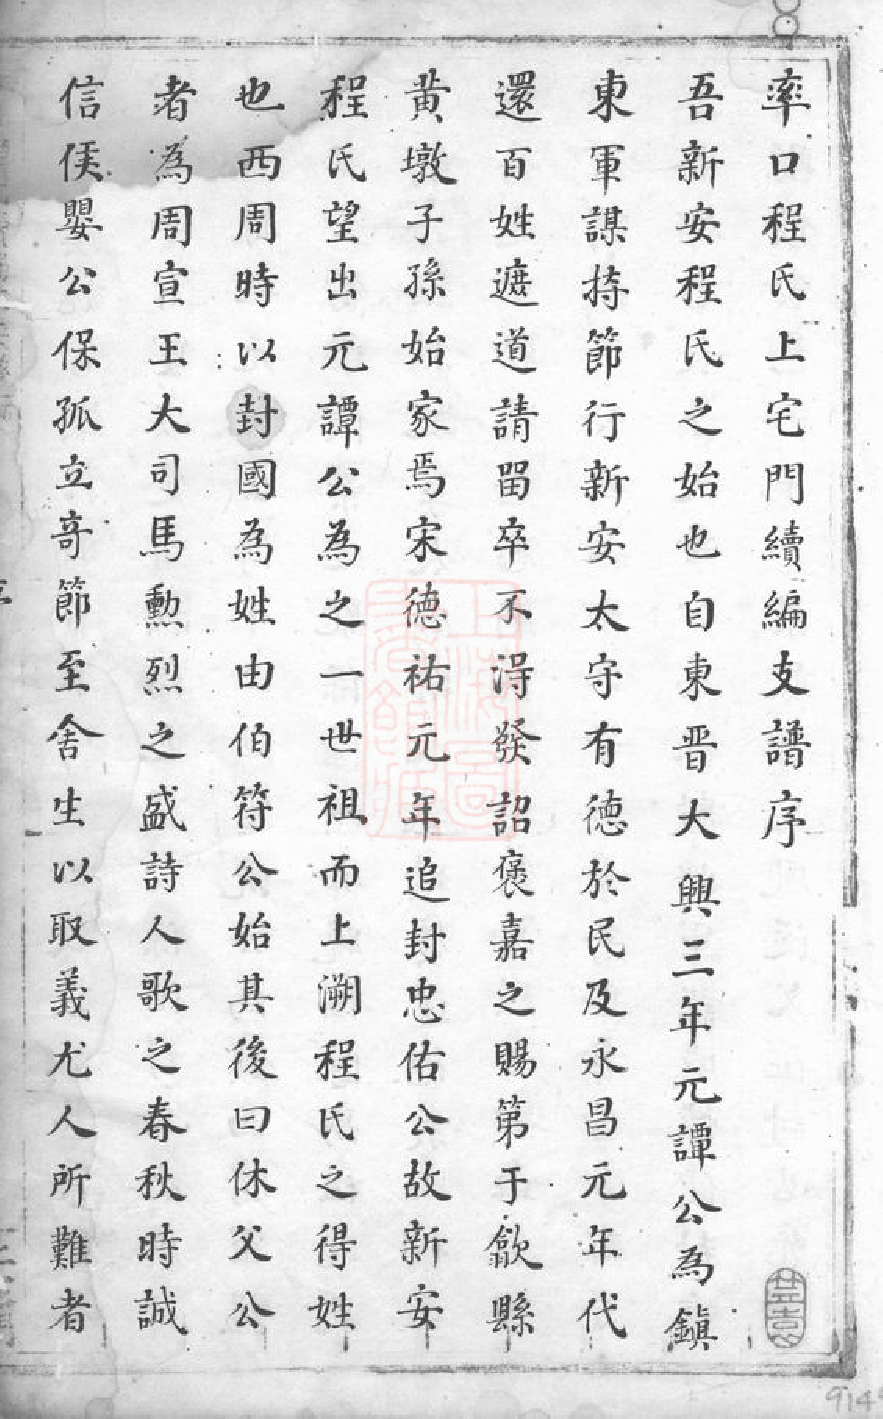 率口程氏上宅門續編支譜序
吾新安程氏之始也自東晋大興三年元譚公為鎮
東軍謀持節行新安太守有德於民及永昌元年代
還百姓遮道請留卒不淂發詔褒嘉之賜第于歙縣
黄墩子孫始家焉宋德祐元年追封忠佑公故新安
程氏望出元譚公為之一世祖而上溯程氏之得姓
也西周時以封國為姓由伯符公始其後曰休父公
者為周宣王大司馬勲烈之盛詩人歌之春秋時誠
信侯嬰公保孤立奇節至舍生以取義尤人所難者
9149